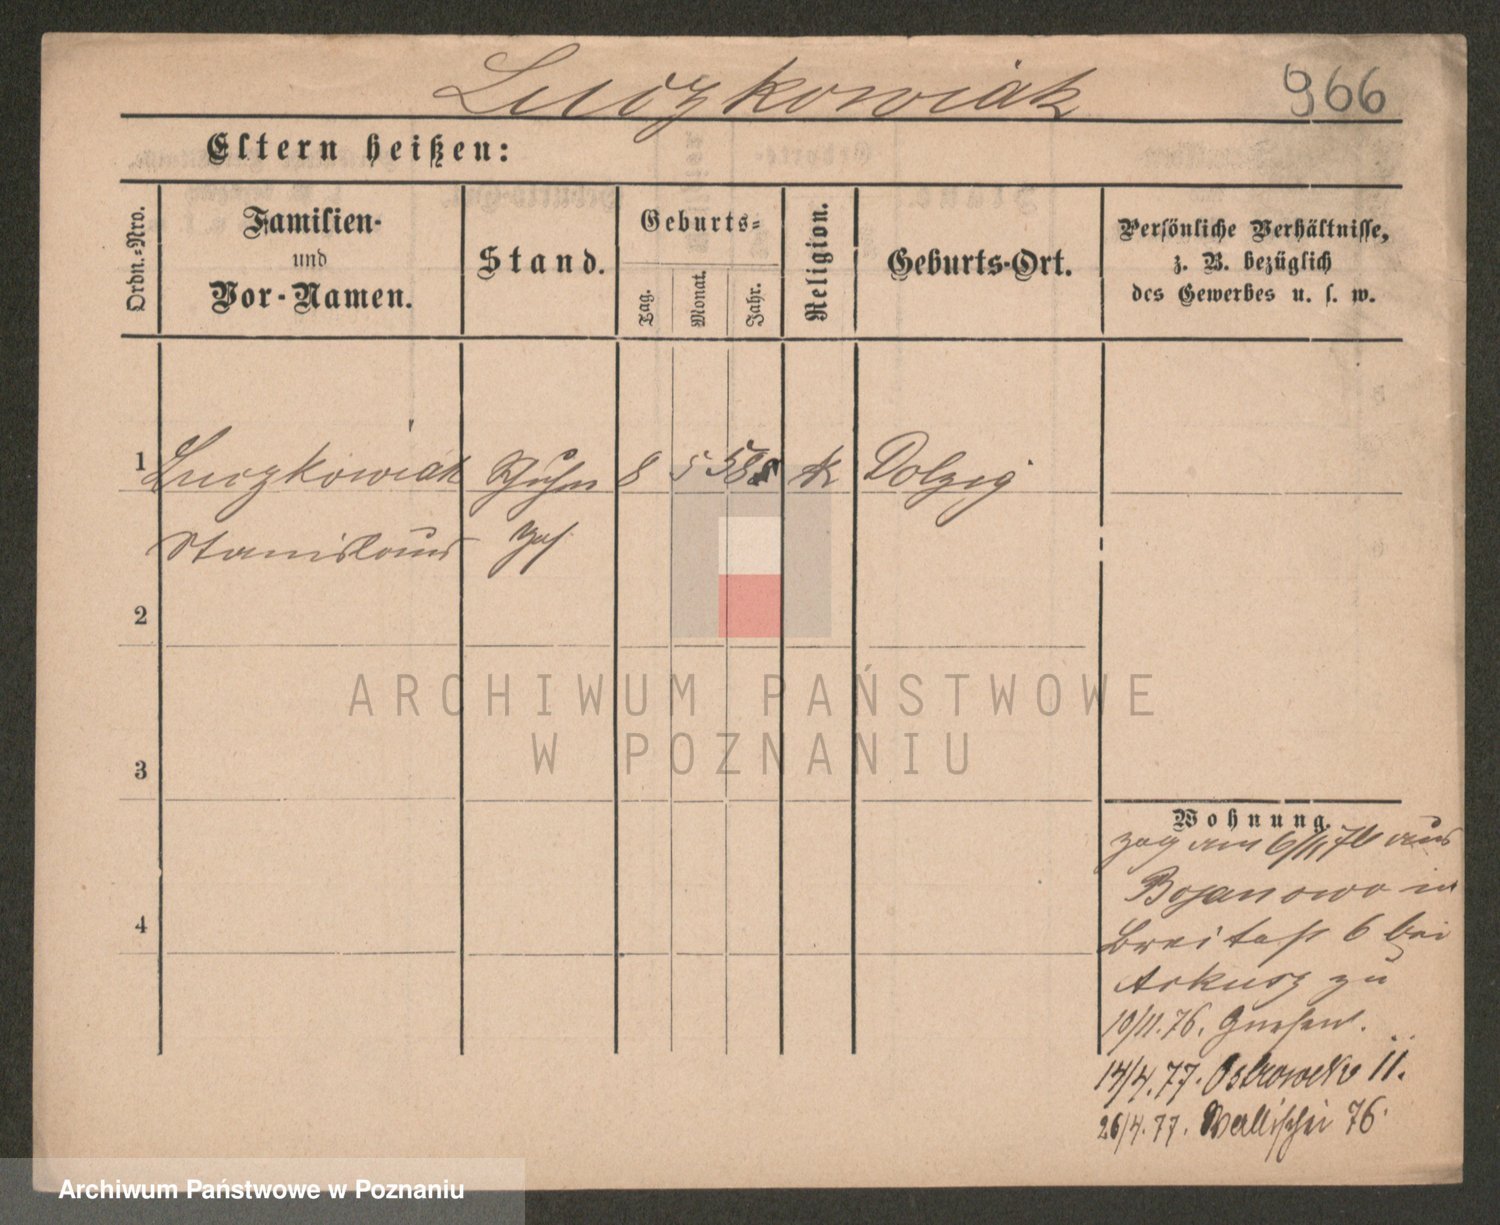 Luczkowiak
966
Eltern heißen:
Ordn.-Nro.
Familien-
und
Vor-Namen.
Stand.
Geburts-
Tag.
Monat.
Jahr.
Religion.
Geburts-Ort.
Persönliche Verhältnisse,
z. B. bezüglich
des Gewerbes u. s. w.
1 Luczkowiak 8 5 58 k Dolzig
Stanislaus
2
3
4
ARCHIWUM PAŃSTWOWE
W POZNANIU
Wohnung.
zog am 6/11 76 aus
Bojanowo in
Breitestr 6 bei
Arkusz zu
10/11.76. Gnesen.
14/4.77. Ostrowek 11.
26/4.77. Wallischei 76.
Archiwum Państwowe w Poznaniu